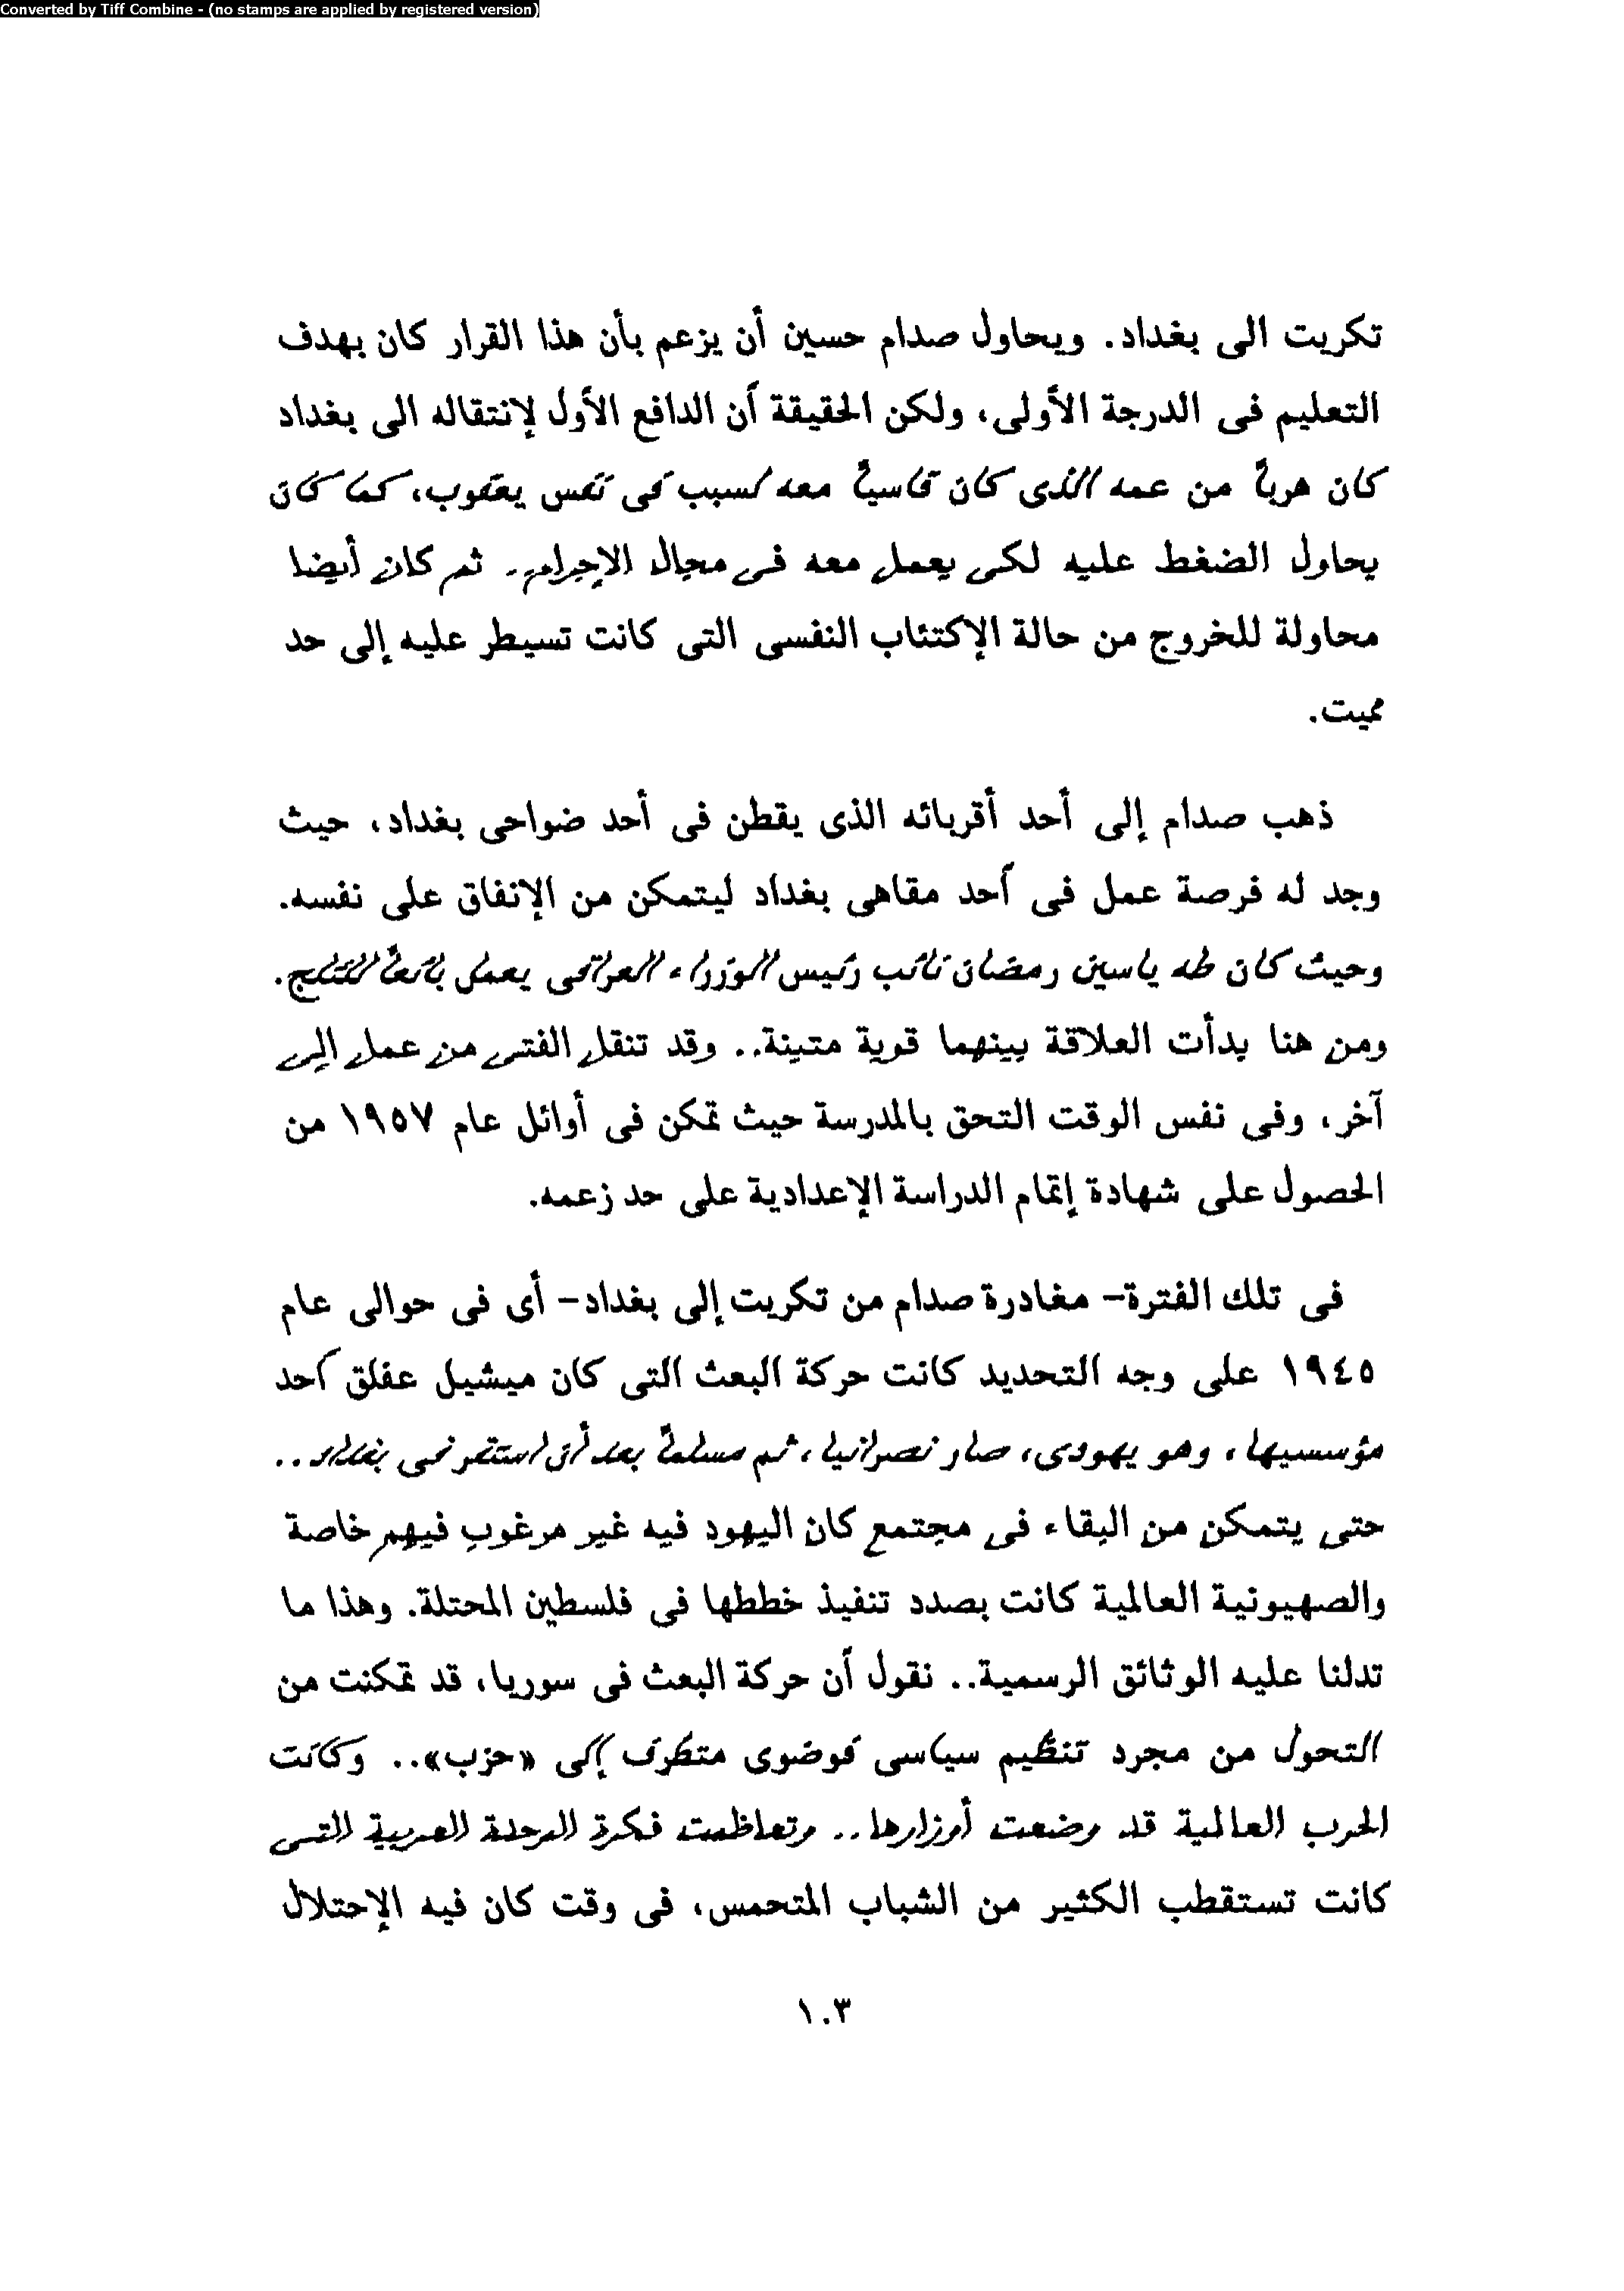 Converted by Tiff Combine - (no stamps are applied by registered version)
تكريت الى بغداد. ويحاول صدام حسين أن يزعم بأن هذا القرار كان بهدف
التعليم فى الدرجة الأولى، ولكن الحقيقة أن الدافع الأول لإنتقاله الى بغداد
كان هرباً من عمه الذى كان قاسياً معه لسبب فى نفس يعقوب، كما كان
يحاول الضغط عليه لكى يعمل معه فى مجال الإجرام.. ثم كان أيضا
محاولة للخروج من حالة الإكتئاب النفسى التى كانت تسيطر عليه إلى حد
مميت.
ذهب صدام إلى أحد أقربائه الذى يقطن فى أحد ضواحى بغداد، حيث
وجد له فرصة عمل فى أحد مقاهى بغداد ليتمكن من الإنفاق على نفسه.
وحيث كان طه ياسين رمضان نائب رئيس الوزراء العراقى يعمل بائعاً للثلج.
ومن هنا بدأت العلاقة بينهما قوية متينة.. وقد تنقل الفتى من عمل إلى
آخر، وفى نفس الوقت التحق بالمدرسة حيث تمكن فى أوائل عام ١٩٥٧ من
الحصول على شهادة إتمام الدراسة الإعدادية على حد زعمه.
فى تلك الفترة- مغادرة صدام من تكريت إلى بغداد- أى فى حوالى عام
١٩٤٥ على وجه التحديد كانت حركة البعث التى كان ميشيل عفلق أحد
مؤسسيها، وهو يهودى، صار نصرانيا، ثم مسلماً بعد أن استقر فى بغداد..
حتى يتمكن من البقاء فى مجتمع كان اليهود فيه غير مرغوب فيهم خاصة
والصهيونية العالمية كانت بصدد تنفيذ خططها فى فلسطين المحتلة. وهذا ما
تدلنا عليه الوثائق الرسمية.. نقول أن حركة البعث فى سوريا، قد تمكنت من
التحول من مجرد تنظيم سياسى فوضوى متطرف إلى «حزب».. وكانت
الحرب العالمية قد وضعت أوزارها.. وتعاظمت فكرة الوحدة العربية التى
كانت تستقطب الكثير من الشباب المتحمس، فى وقت كان فيه الإحتلال
١٠٣